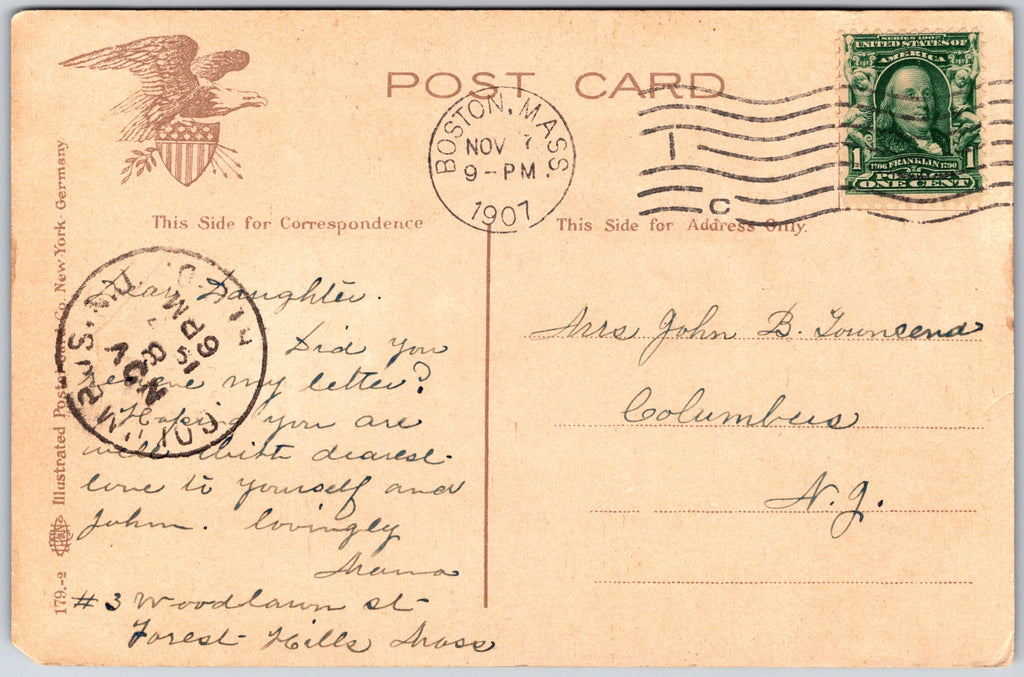 POST CARD
SERIES 1902
UNITED STATES OF
AMERICA
1 1706 FRANKLIN 1790 1
POSTAGE
ONE CENT
BOSTON, MASS.
NOV 7
9-PM
1907
1
C
This Side for Correspondence
This Side for Address Only.
Dear Daughter.
Did you
receive my letter?
Hoping you are
well with dearest
love to yourself and
John. lovingly
Mama
#3 Woodlawn st
Forest Hills Mass
Mrs John B. Townsend
Columbus
N.J.
COLUMBUS, N.J.
REC'D.
NOV
8
6PM
179.-2 Illustrated Postal Card Co. New-York Germany